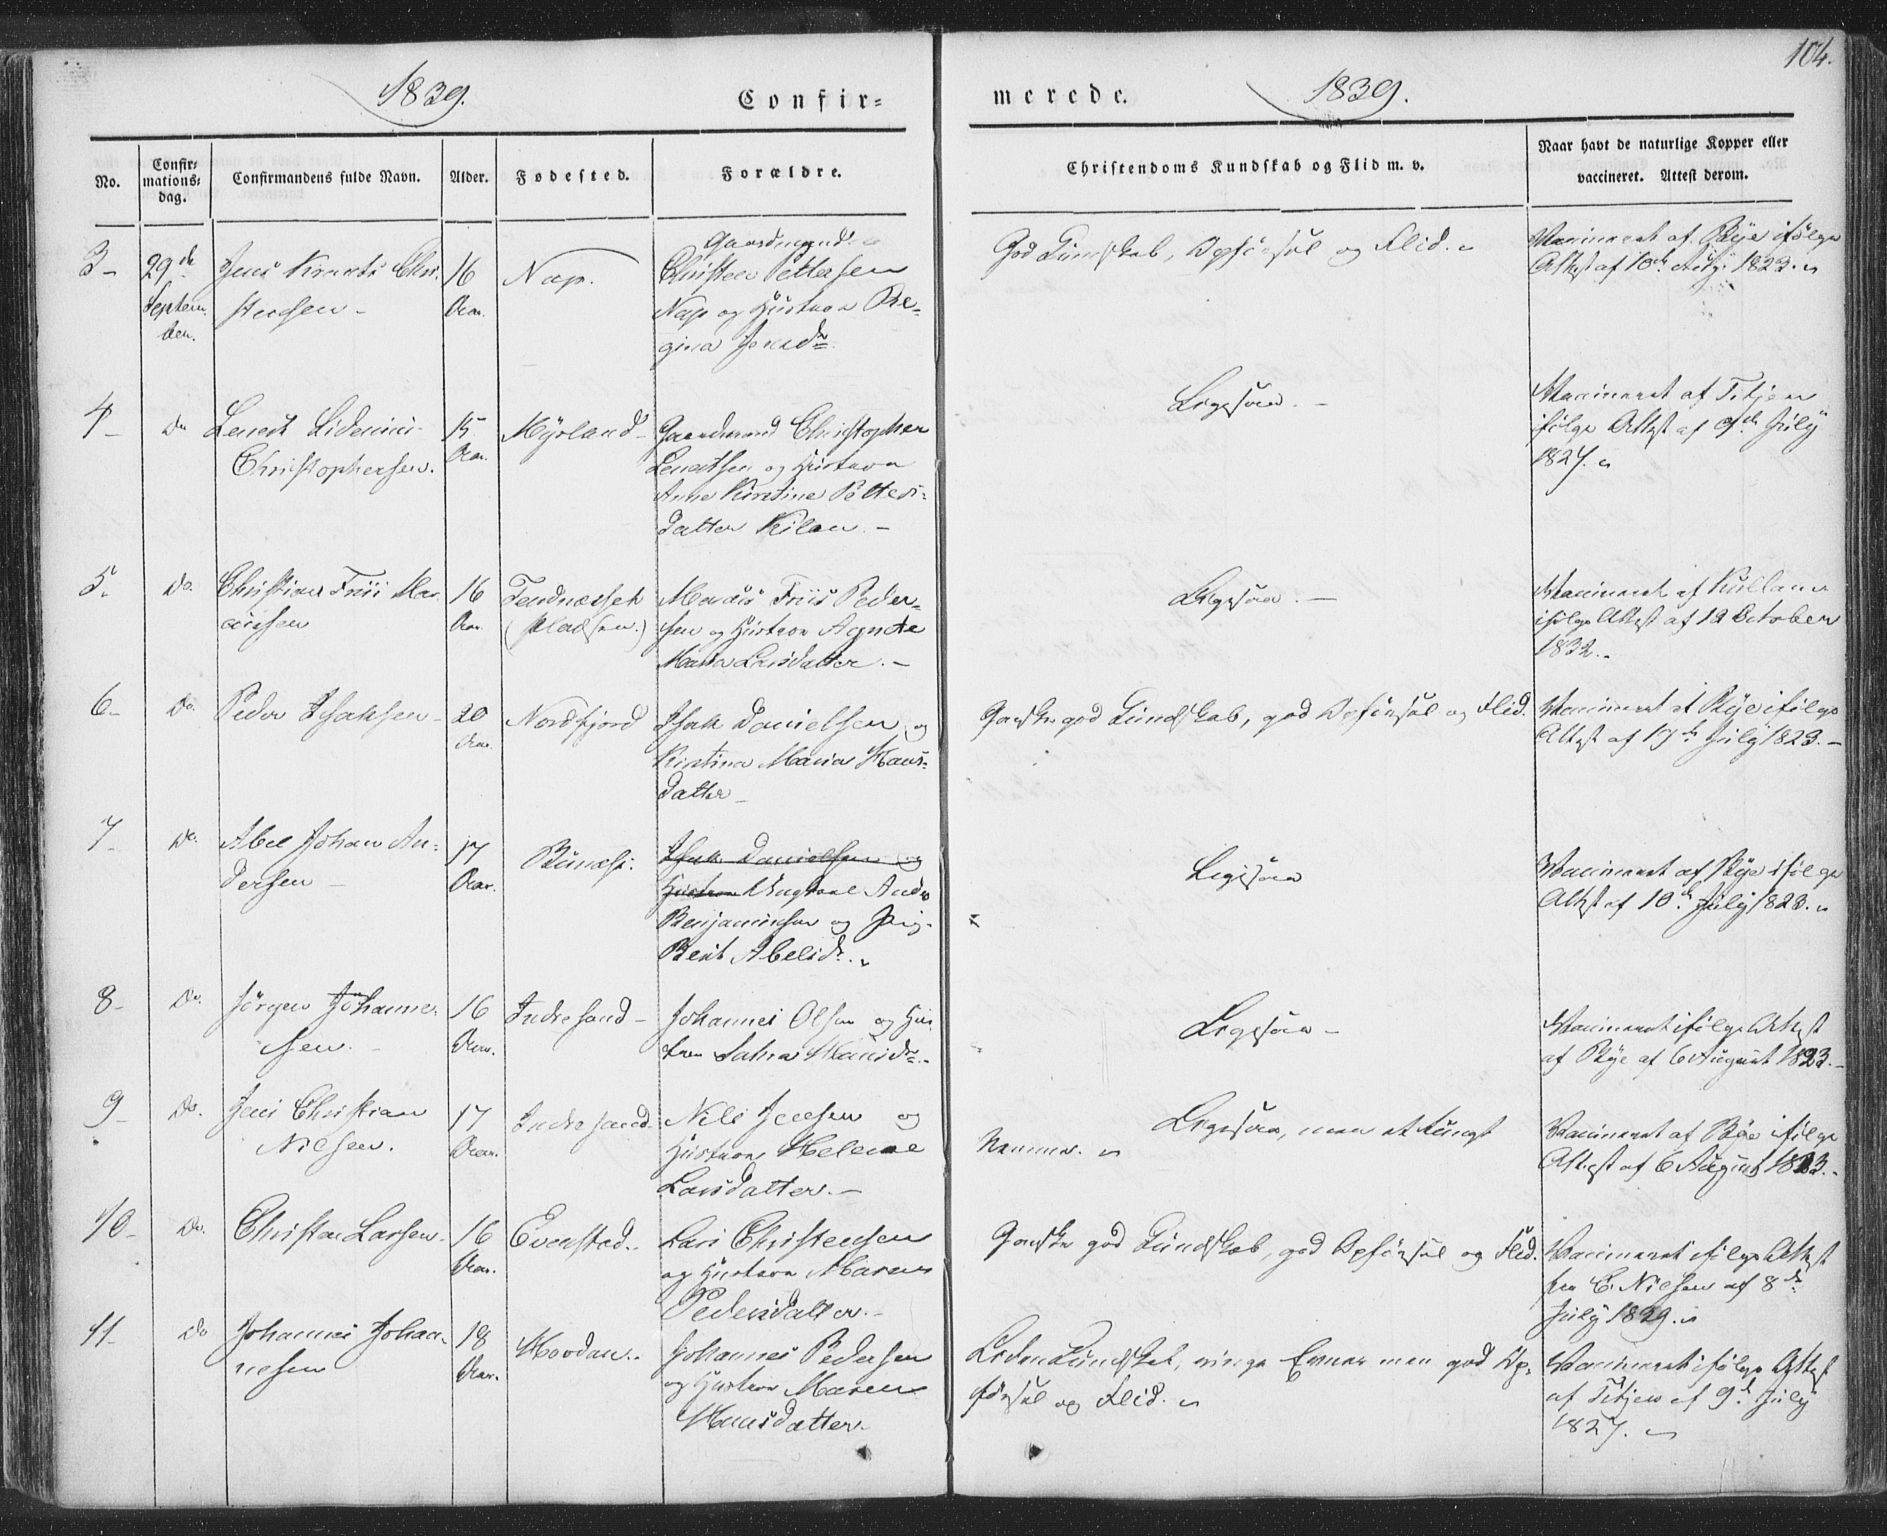 104.
1839.
Confir=
merede.
1839.
No.
Confir=
mations=
dag.
Confirmandens fulde Navn.
Alder.
Fødested.
Forældre.
Christendoms Kundskab og Flid m. v.
Naar havt de naturlige Kopper eller
vaccineret. Attest derom.
3-
29de
Septem
ber.
Jens Chri-
stensen -
16
Aar.
Nap.
Gaardmand
Christen Pettersen
Nap og Hustrue Re-
gina Jensdr
God Kundskab, Opførsel og Flid.
Vaccineret af Rye ifølge
Attest af 10de Aug. 1823.
4-
Do
Lenert
Christophersen.
15
Aar.
Myrland-
Gaardmand Christopher
Lenertsen og Hustrue
Anne Kirstine Petters-
datter Kilen. -
Ligesaa. -
Vaccineret af Titjen
ifølge Attest af 9de July
1827.
5.
Do.
Christian Friis Mar-
cussen
16
Aar.
Tendnesset
(Pladsen.)
Marcus Friis Peder-
sen og Hustrue Agnete
Maria Larsdatter. -
Ligesaa. -
Vaccineret af
ifølge Attest af October
1832.
6-
Do.
Peder Isaksen-
20
Aar.
Nordfjord
Isak Danielsen og
Kirstina Maria Hans-
datter -
Ganske god Kundskab, god Opførsel og Flid.
Vaccineret af Rye ifølge
Attest af 17de July 1823. -
7-
Do.
Abel Johan An-
dersen -
17
Aar.
Bunæs.
Isak Danielsen og
Hustrue Ungkarl Anders
Benjaminsen og Pig.
Berit Abelsdr.
Ligesaa
Vaccineret af Rye ifølge
Attest af 10de July 1823.
8-
Do.
Jørgen Johanne-
sen. -
16
Aar.
Indresand-
Johannes Olsen og Hus-
true Sahra Hansdr. -
Ligesaa -
Vaccineret ifølge Attest
af Rye af 6 August 1823. -
9-
Do.
Jens Christian
Nilsen.
17
Aar.
Indresand
Nils Jensen og
Hustrue Helene
Larsdatter. -
Ligesaa, men et tungt
Nemme.
Vaccineret af Rye ifølge
Attest af 6 August 1823. -
10-
Do.
Christen Larsen.
16
Aar.
Evenstad.
Lars Christensen
og Hustrue Maren
Pedersdatter. -
Ganske god Kundskab, god Opførsel og Flid.
Vaccineret ifølge Attest
fra C. Nielsen af 8de
July 1829.
11-
Do
Johannes Johan-
nesen
18
Aar.
Hovdan.
Johannes Pedersen
og Hustrue Maren
Hansdatter.
Liden Kundskab, ringe Evner men god Op-
førsel og Flid.
Vaccineret ifølge Attest
af Titjen af 9de July
1827.